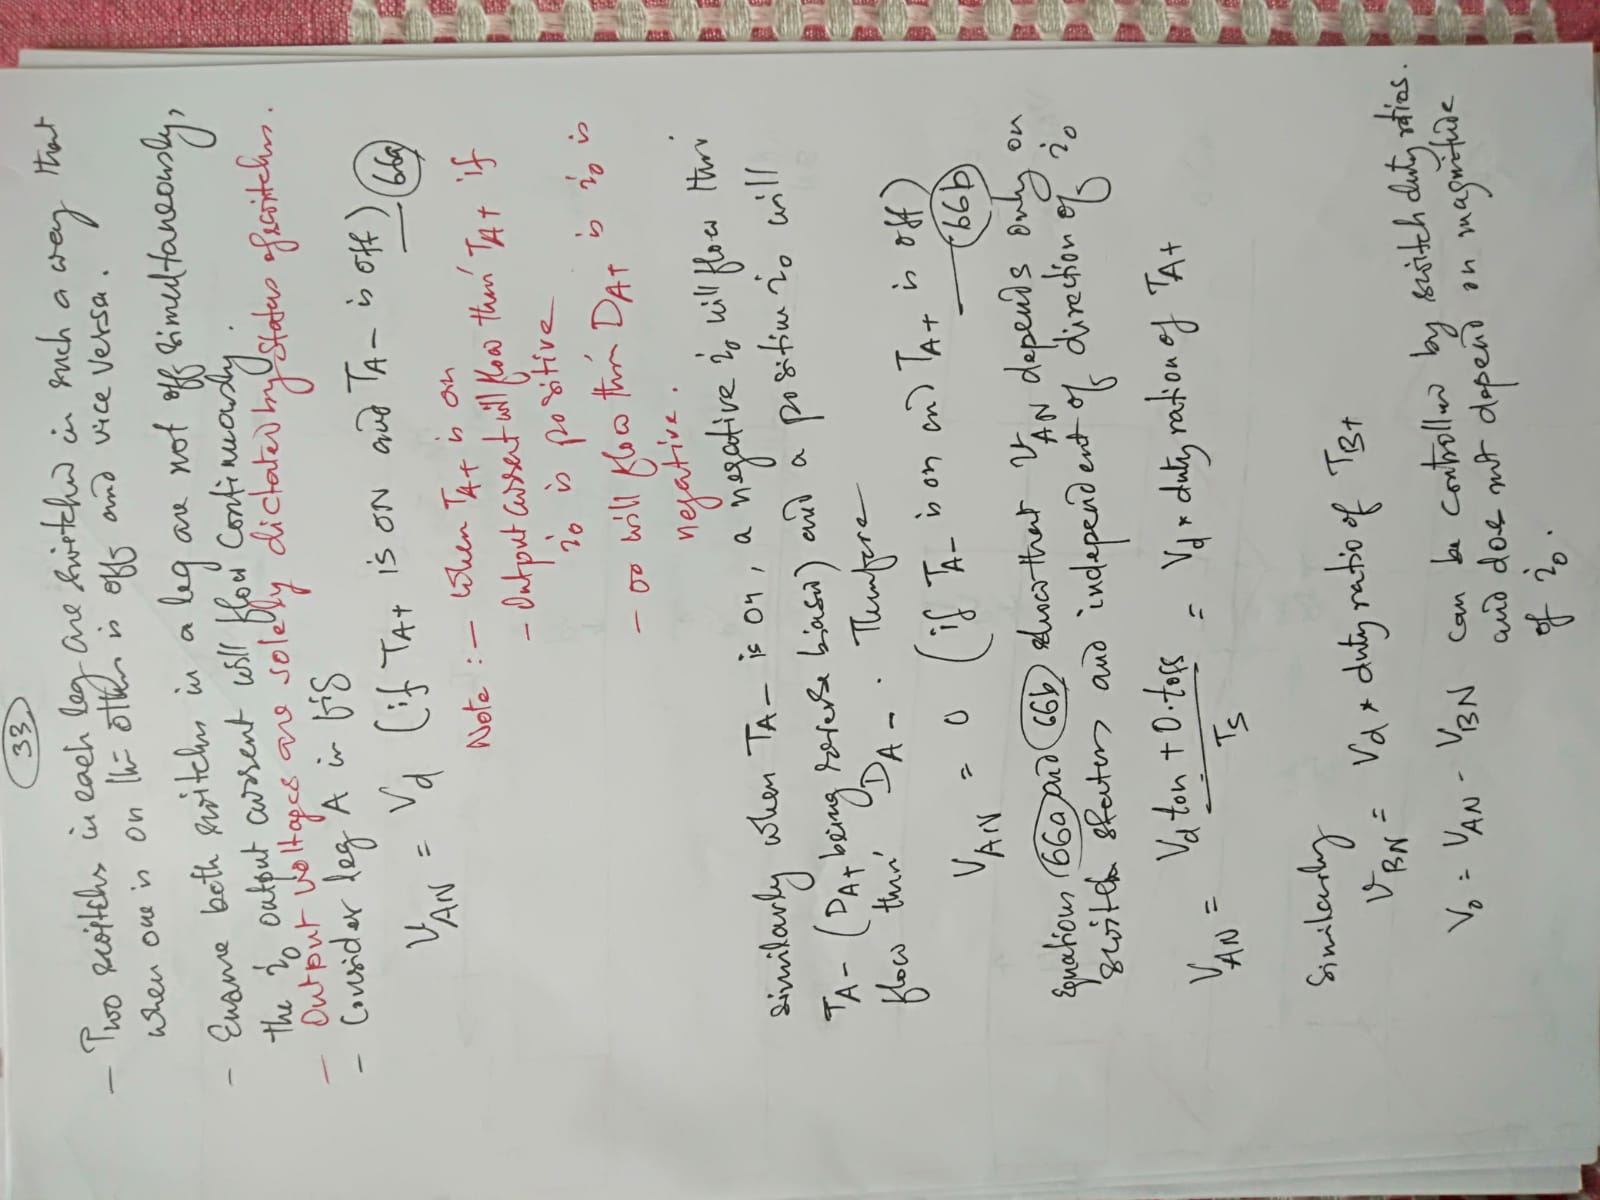 33
- Two switches in each leg are switched in such a way that
when one is on the other is off and vice versa.
- Ensure both switches in a leg are not off simultaneously,
the io output current will flow continuously.
- Output voltages are solely dictated by status of switches.
- Consider leg A in fig
VAN = Vd (if TA+ is ON and TA- is off) — 66a
Note :- - When TA+ is on
- Output current will flow thru' TA+ if
io is positive
- or will flow thru' DA+ is io is
negative.
similarly when TA- is on, a negative io will flow thru
TA- (DA+ being reverse biased) and a positive io will
flow thru' DA- . Therefore
VAN = 0 (if TA- is on and TA+ is off)
— 66b
Equations 66a and 66b show that VAN depends only on
switch status and independent of direction of io
VAN = Vd ton + 0.toff / Ts = Vd * duty ration of TA+
Similarly
VBN = Vd * duty ratio of TB+
Vo = VAN - VBN can be controlled by switch duty ratios.
and does not depend on magnitude
of io.